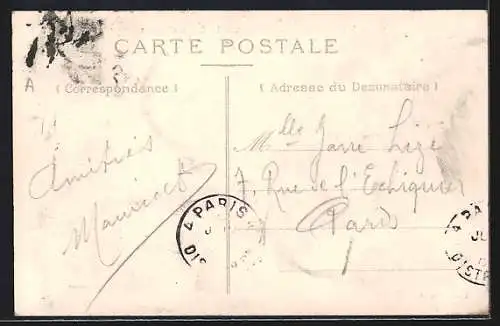 CARTE POSTALE
A
( Correspondance )
( Adresse du Destinataire )
Amitiés
Mlle
7, Rue de l'Echiquier
Paris
4 PARIS
DIS
4 PA
DISTR